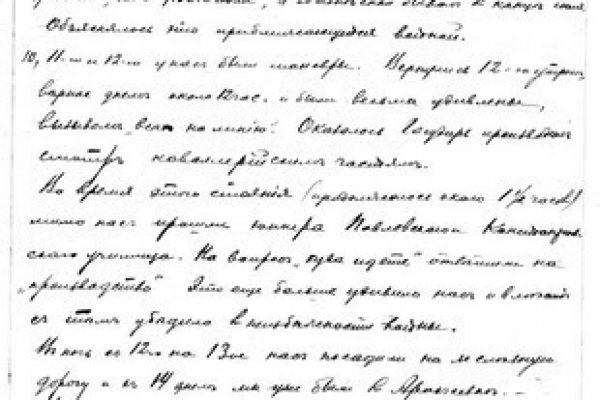 Объяснялось это приближающейся войной.
10, 11-го и 12-го у нас были маневры. Вернулись 12-го утром,
вернее днем около 12 час. и были весьма удивлены,
вызовом „всех на линию". Оказалось Государь производил
смотр кавалерийским частям.
Во время этого стояния (продолжалось около 1½ часов)
мимо нас прошли юнкера Павловского Константинов
ского училища. На вопрос „куда идете" ответили на
„производство" Это еще больше удивило нас и вместе
с тем убедило в неизбежности войны.
В ночь с 12го на 13ое нас посадили на железную
дорогу и в 14 днем мы уже были в